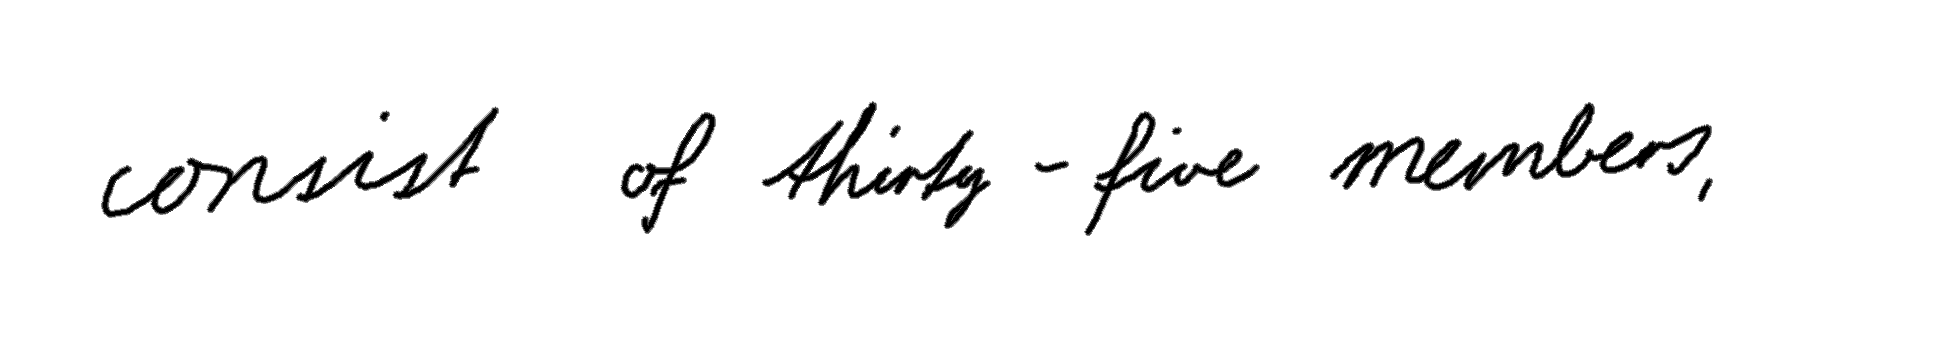 consist of thirty-five members,